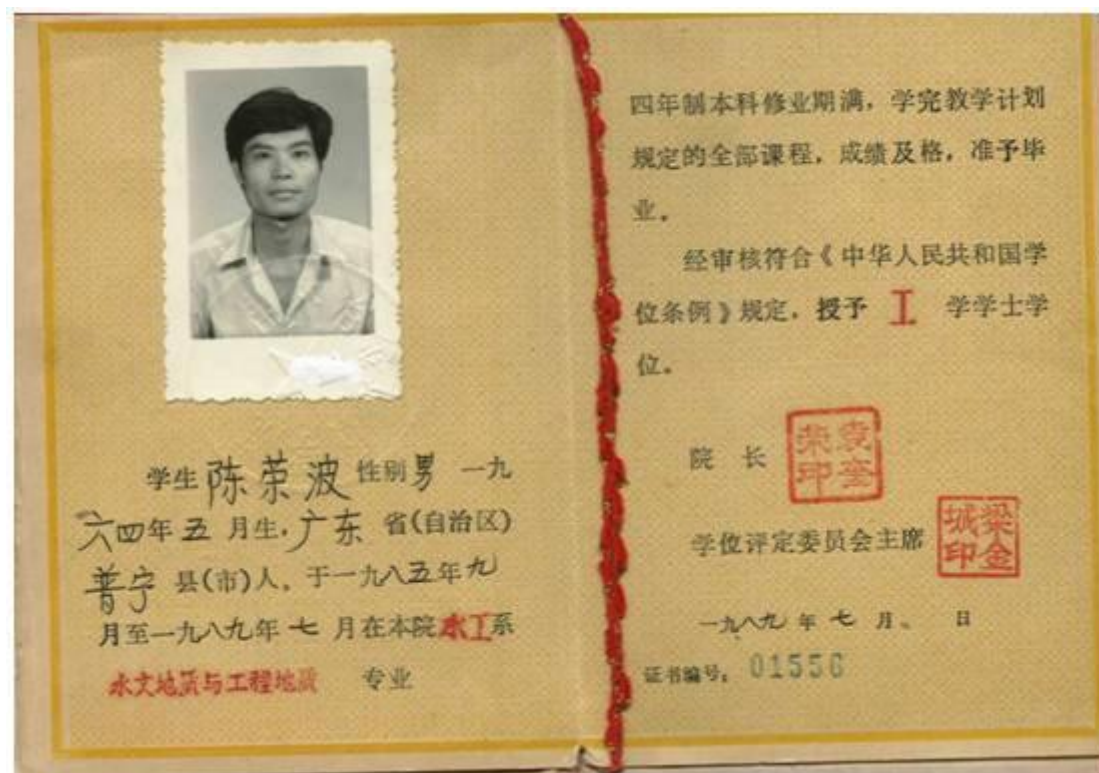 学生陈荣波性别男 一九
六四年五月生,广东省(自治区)
普宁县(市)人,于一九八五年九
月至一九八九年七月在本院水工系
水文地质与工程地质 专业
四年制本科修业期满,学完教学计划
规定的全部课程,成绩及格,准予毕
业。
经审核符合《中华人民共和国学
位条例》规定,授予 工 学学士学
位。
院 长
袁奎荣印
学位评定委员会主席
梁金城印
一九八九年七月 日
证书编号:01556